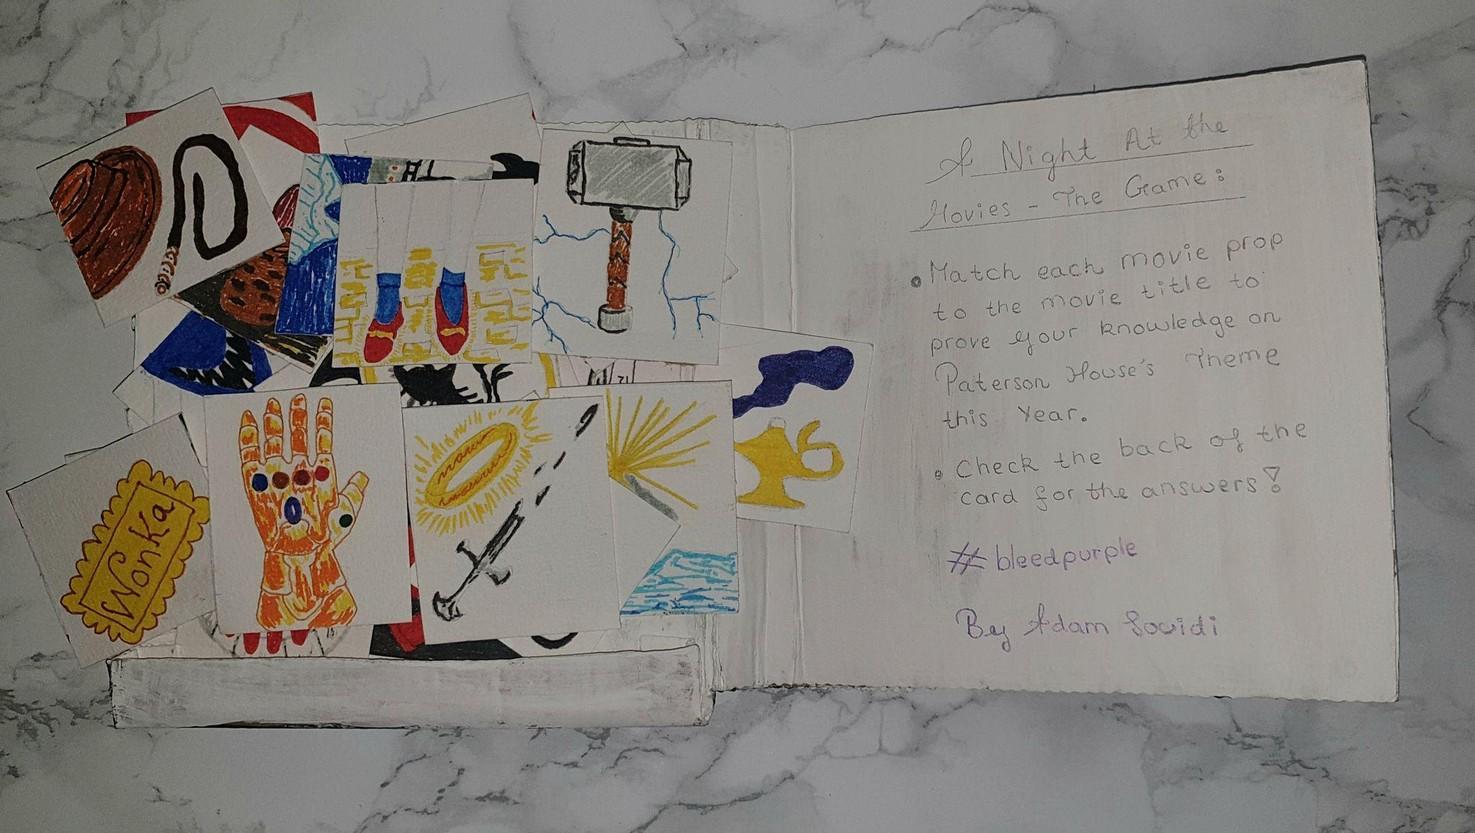 Wonka
A Night At the
Movies - The Game:
Match each movie prop
to the movie title to
prove your knowledge on
Paterson House's Theme
this Year.
Check the back of the
card for the answers!
#bleedpurple
By Adam Sowidi